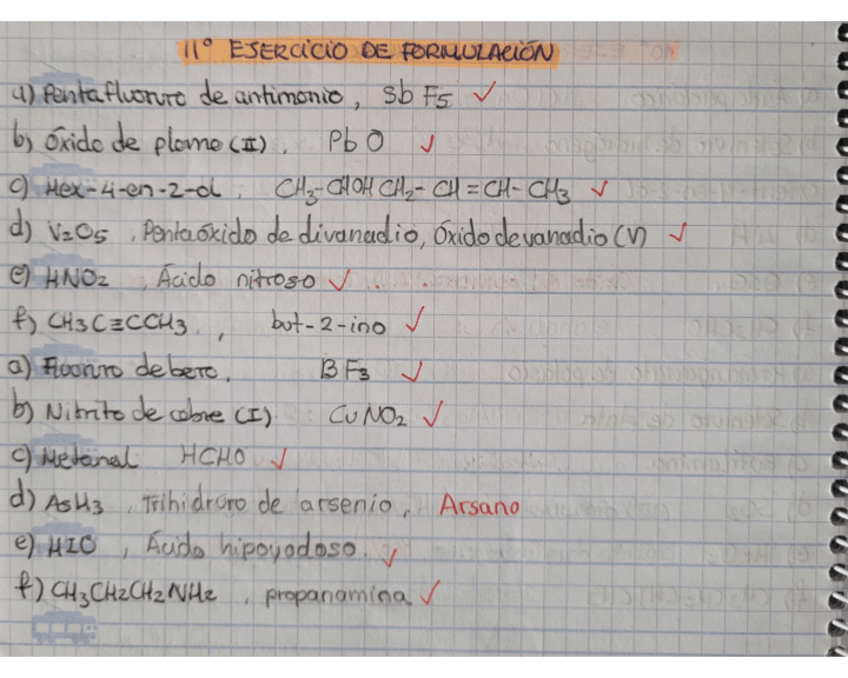 11º EJERCICIO DE FORMULACIÓN
a) Pentafluoruro de antimonio, SbF5 ✓
b) Óxido de plomo (II), PbO ✓
c) Hex-4-en-2-ol, CH3-CHOH CH2-CH=CH-CH3 ✓
d) V2O5, Pentaóxido de divanadio, Óxido de vanadio (V) ✓
e) HNO2, Ácido nitroso ✓
f) CH3C≡CCH3, but-2-ino ✓
a) Fluoruro de boro, BF3 ✓
b) Nitrito de cobre (I) CuNO2 ✓
c) Metanal HCHO ✓
d) AsH3, Trihidruro de arsenio, Arsano
e) HIO, Ácido hipoyodoso. ✓
f) CH3CH2CH2NH2, propanamina ✓